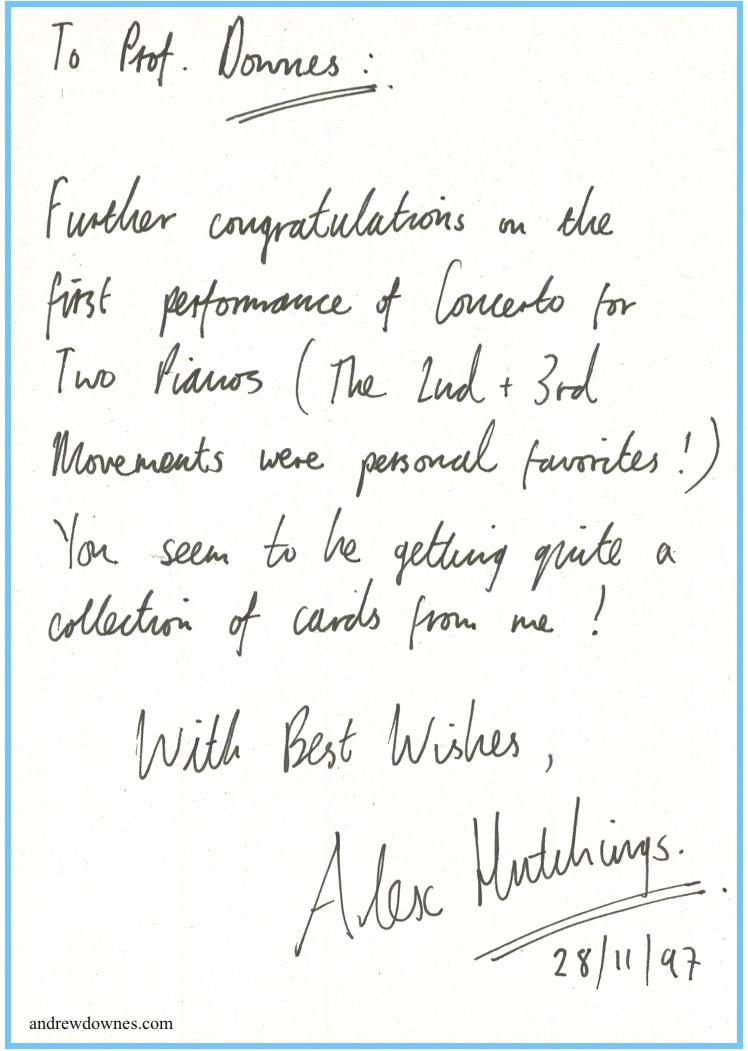 To Prof. Downes :
Further congratulations on the
first performance of Concerto for
Two Pianos (The 2nd + 3rd
Movements were personal favorites!)
You seem to be getting quite a
collection of cards from me!
With Best Wishes,
Alex Hutchings.
28/11/97
andrewdownes.com